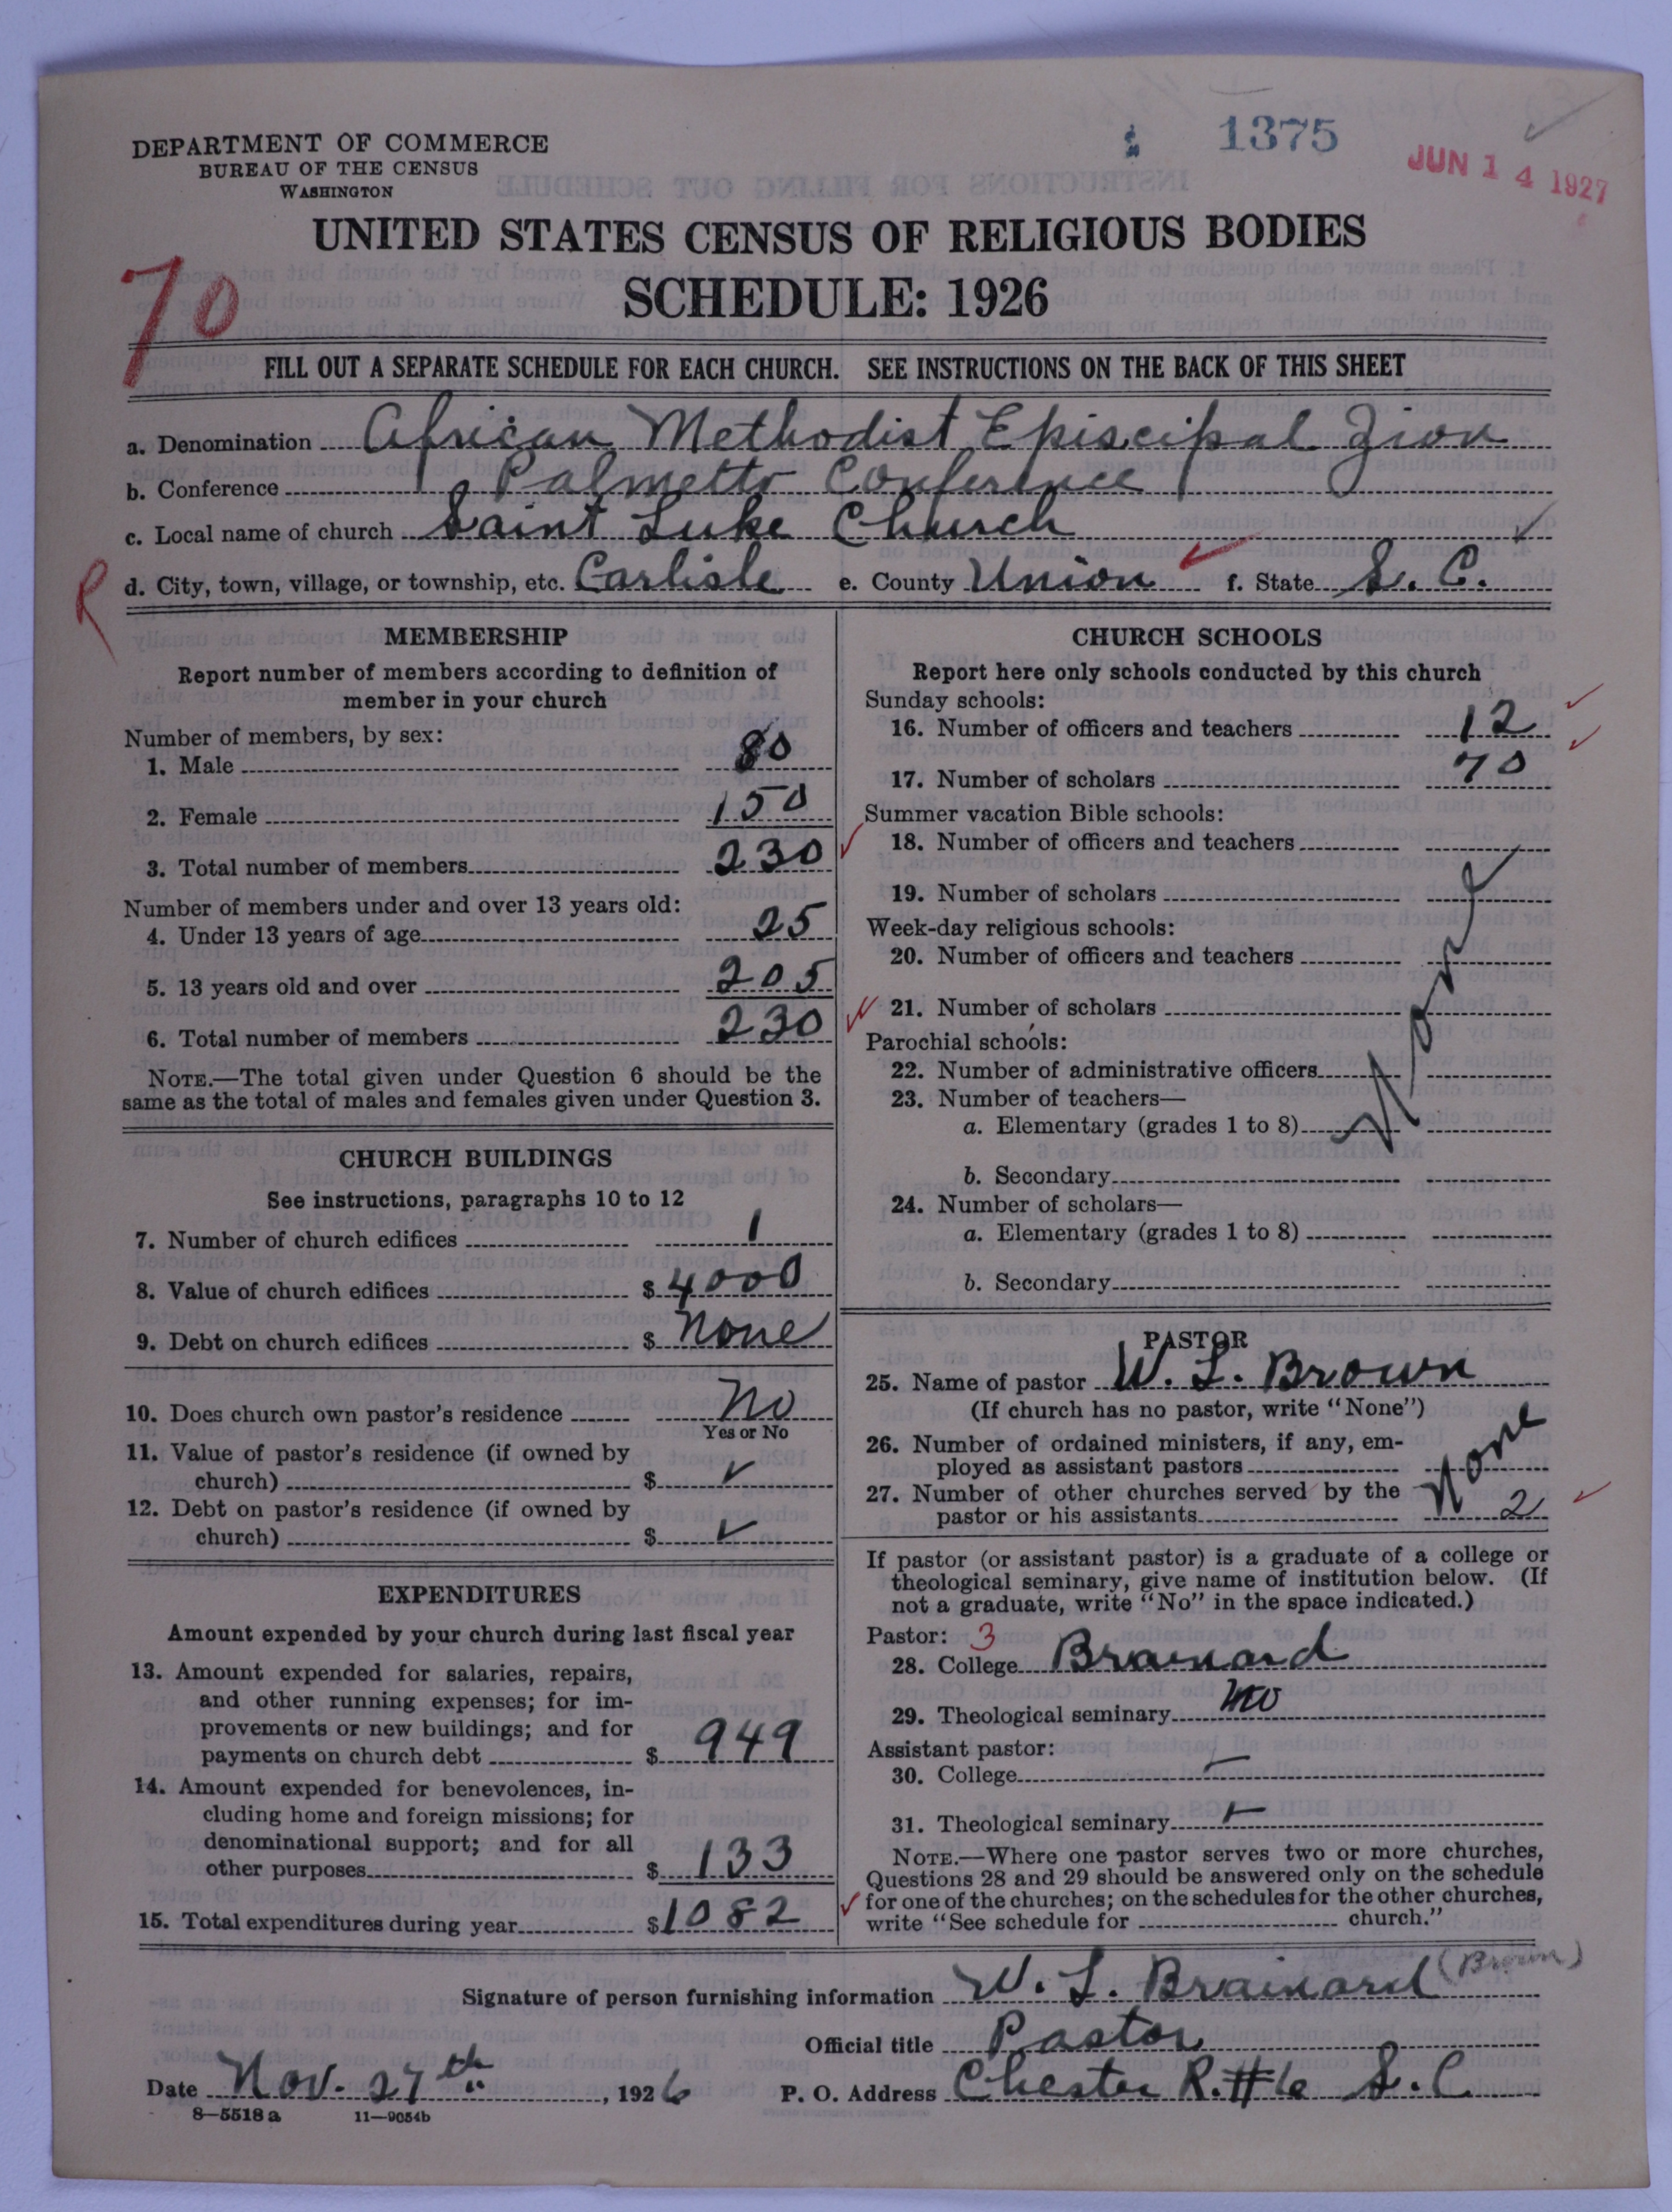 DEPARTMENT OF COMMERCE
BUREAU OF THE CENSUS
WASHINGTON
1375
JUN 14 1927
UNITED STATES CENSUS OF RELIGIOUS BODIES
SCHEDULE: 1926
70
FILL OUT A SEPARATE SCHEDULE FOR EACH CHURCH. SEE INSTRUCTIONS ON THE BACK OF THIS SHEET
a. Denomination African Methodist Episcipal Zion
b. Conference Palmetto Conference
c. Local name of church Saint Luke Church
R
d. City, town, village, or township, etc. Carlisle e. County Union f. State S. C.
MEMBERSHIP
Report number of members according to definition of
member in your church
Number of members, by sex:
1. Male 80
2. Female 150
3. Total number of members 230
Number of members under and over 13 years old:
4. Under 13 years of age 25
5. 13 years old and over 205
6. Total number of members 230
NOTE.—The total given under Question 6 should be the
same as the total of males and females given under Question 3.
CHURCH BUILDINGS
See instructions, paragraphs 10 to 12
7. Number of church edifices 1
8. Value of church edifices $ 4000
9. Debt on church edifices $ None
10. Does church own pastor's residence No
Yes or No
11. Value of pastor's residence (if owned by
church) $ ✓
12. Debt on pastor's residence (if owned by
church) $ ✓
EXPENDITURES
Amount expended by your church during last fiscal year
13. Amount expended for salaries, repairs,
and other running expenses; for im-
provements or new buildings; and for
payments on church debt $ 949
14. Amount expended for benevolences, in-
cluding home and foreign missions; for
denominational support; and for all
other purposes $ 133
15. Total expenditures during year $ 1082
CHURCH SCHOOLS
Report here only schools conducted by this church
Sunday schools:
16. Number of officers and teachers 12
17. Number of scholars 70
Summer vacation Bible schools:
18. Number of officers and teachers
19. Number of scholars
Week-day religious schools:
20. Number of officers and teachers
21. Number of scholars
None
Parochial schools:
22. Number of administrative officers
23. Number of teachers—
a. Elementary (grades 1 to 8)
b. Secondary
24. Number of scholars—
a. Elementary (grades 1 to 8)
b. Secondary
PASTOR
25. Name of pastor W. L. Brown
(If church has no pastor, write "None")
26. Number of ordained ministers, if any, em-
ployed as assistant pastors None
27. Number of other churches served by the
pastor or his assistants 2
If pastor (or assistant pastor) is a graduate of a college or
theological seminary, give name of institution below. (If
not a graduate, write "No" in the space indicated.)
Pastor: 3
28. College Brainard
29. Theological seminary no
Assistant pastor:
30. College
31. Theological seminary
NOTE.—Where one pastor serves two or more churches,
Questions 28 and 29 should be answered only on the schedule
for one of the churches; on the schedules for the other churches,
write "See schedule for church."
Signature of person furnishing information W. L. Brainard (Brown)
Official title Pastor
Date Nov. 27th, 1926 P. O. Address Chester R. #6 S. C.
8—5518a 11—9054b